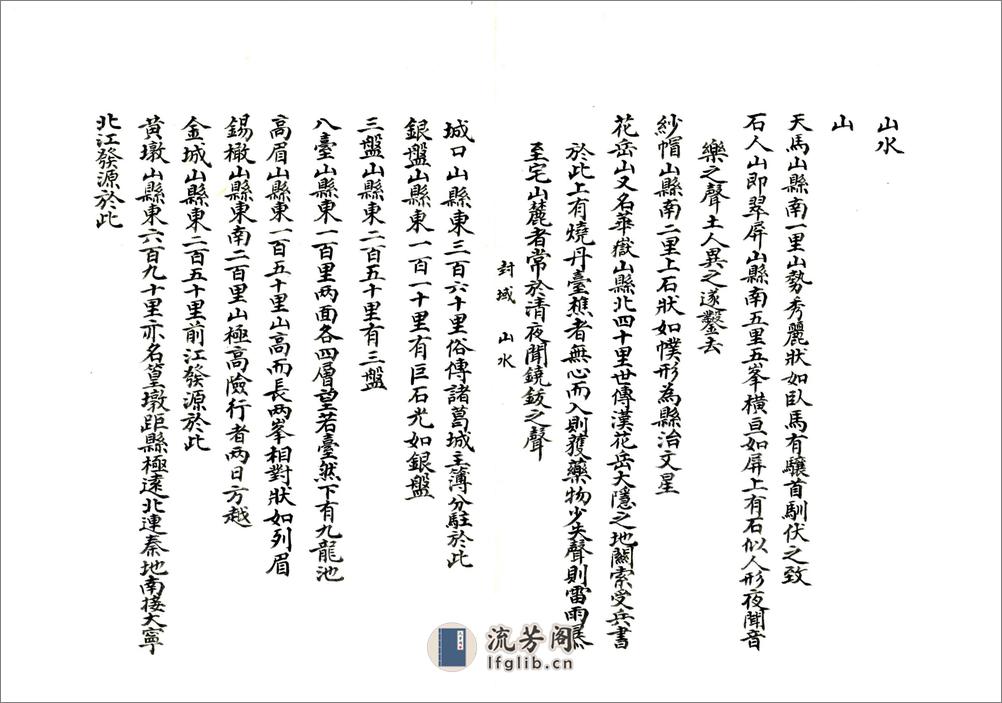 山水
山
天馬山縣南一里山勢秀麗狀如臥馬有驤首馴伏之致
石人山即翠屏山縣南五里五峯橫亘如屏上有石似人形夜聞音
樂之聲土人異之遂鑿去
紗帽山縣南二里上石狀如幞形為縣治文星
花岳山又名華嶽山縣北四十里世傳漢花岳大隱之地關索受兵書
於此上有燒丹臺樵者無心而入則獲藥物少失聲則雷雨
至宅山麓者常於清夜聞鐃鈸之聲
封域 山水
城口山縣東三百六十里俗傳諸葛城主簿分駐於此
銀盤山縣東一百一十里有巨石光如銀盤
三盤山縣東二百五十里有三盤
八臺山縣東一百里两面各四層望若臺然下有九龍池
高眉山縣東一百五十里山高而長两峯相對狀如列眉
錫橄山縣東南二百里山極高險行者两日方越
金城山縣東二百五十里前江發源於此
黃墩山縣東六百九十里亦名篁墩距縣極遠北連秦地南接大寧
北江發源於此
流芳阁
lfglib.cn